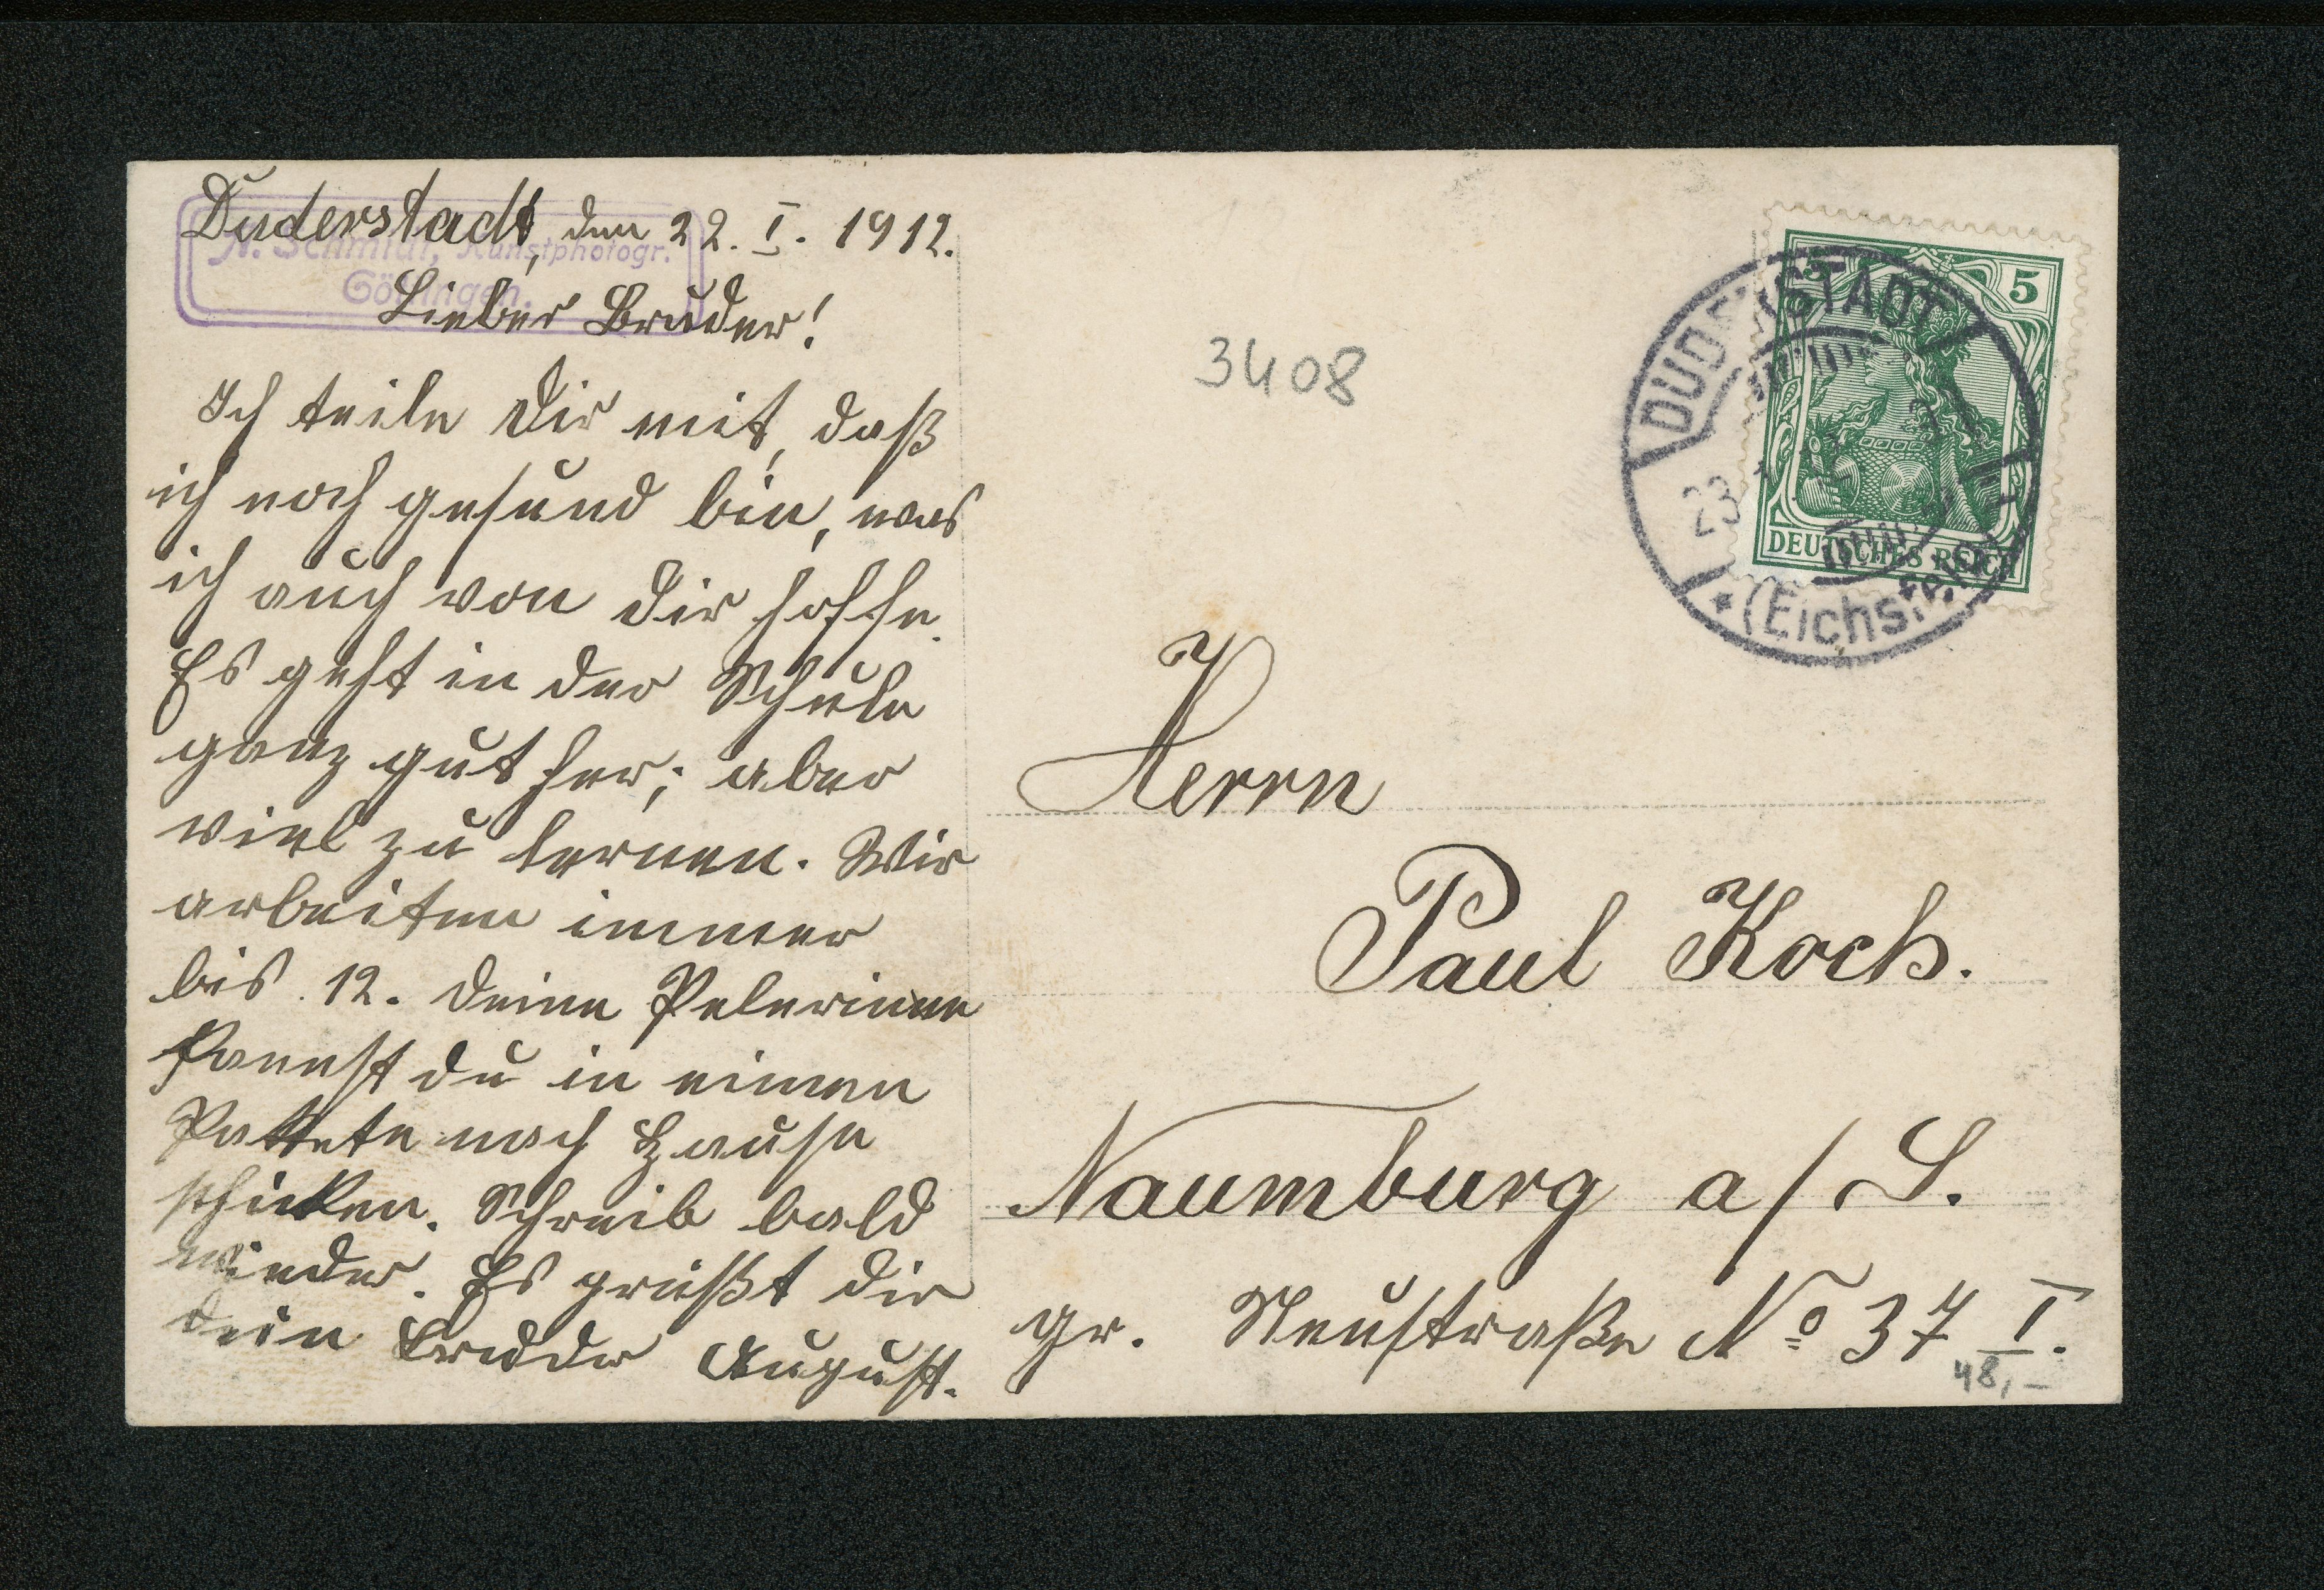 Duderstadt, den 22. I. 1912.
A. Schmidt, Kunstphotogr.
Göttingen.
Lieber Bruder!
Ich teile Dir mit, daß
ich noch gesund bin, was
ich auch von Dir hoffe.
Es geht in der Schule
ganz gut her; aber
viel zu lernen. Wir
arbeiten immer
bis 12. Deine Pelerinne
kannst du in einen
nach Hause
schicken. Schreib bald
wieder. Es grüßt dir
dein Bruder August.
3408
5
DEUTSCHES REICH
DUDERSTADT
23
(Eichsfeld)
Herrn
Paul Koch.
Naumburg a/S.
gr. Neustraße No 37 I.
48,-